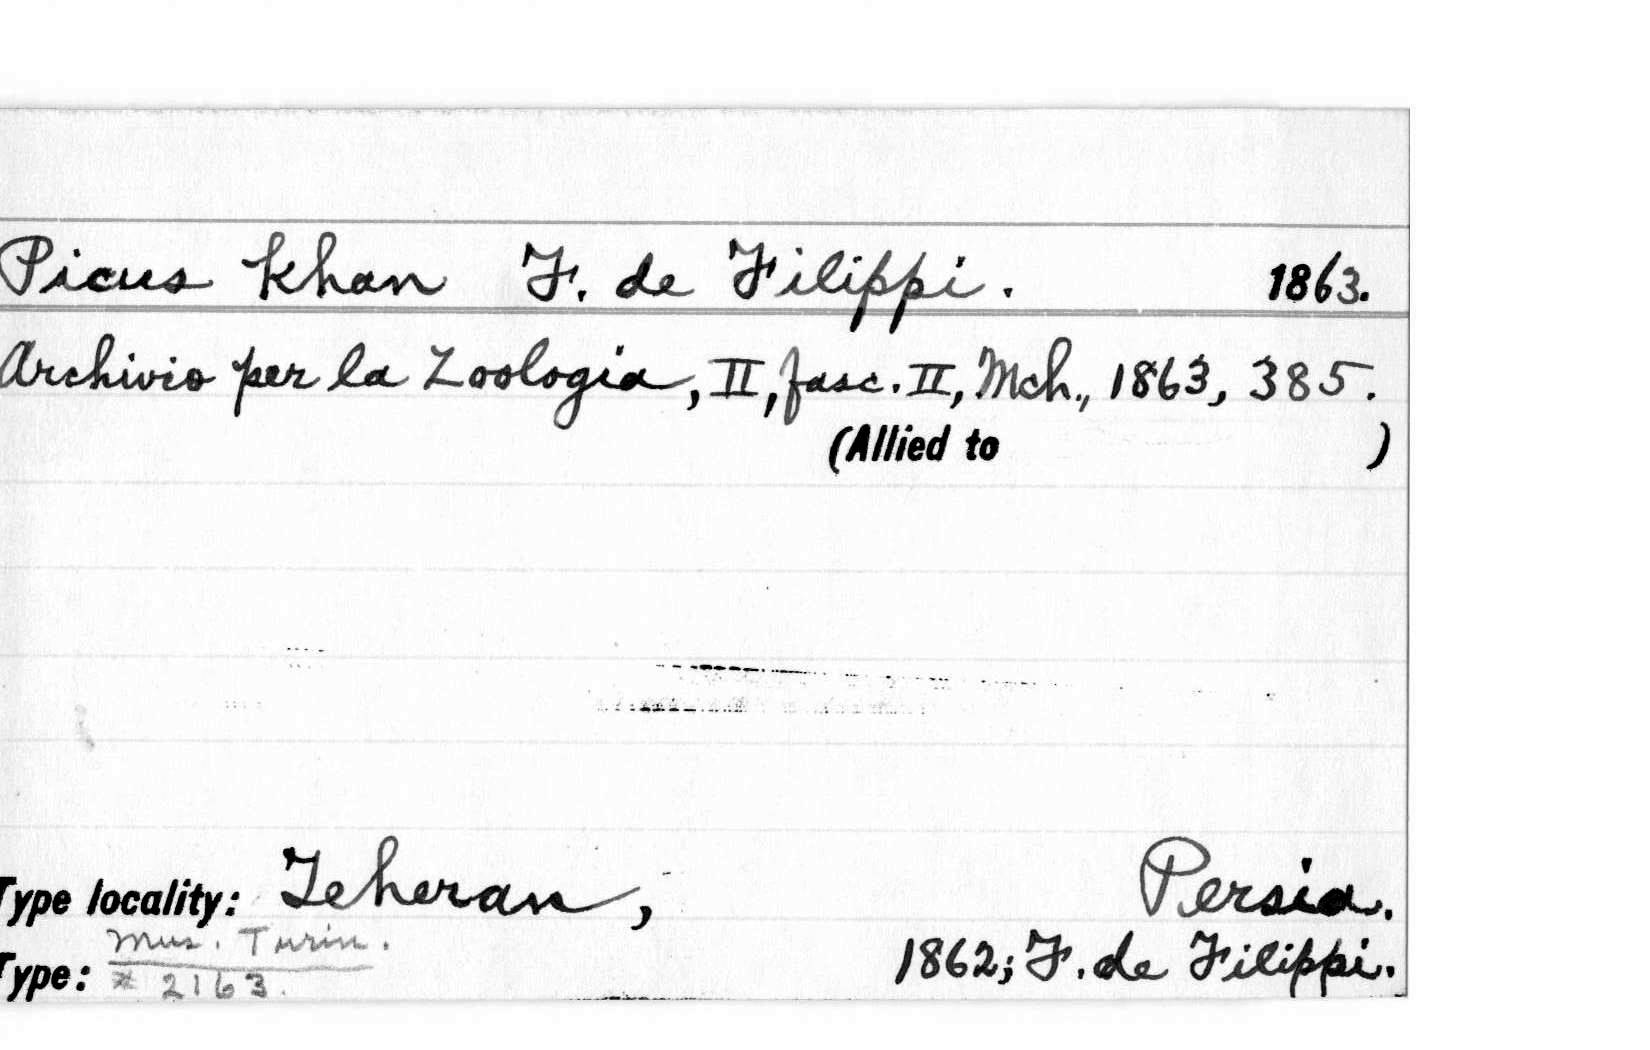 Picus khan F. de Filippi. 1863.
Archivio per la Zoologia, II, fasc. II, Mch., 1863, 385.
(Allied to )
Type locality: Teheran, Persia.
Mus. Turin.
Type: # 2163. 1862; F. de Filippi.